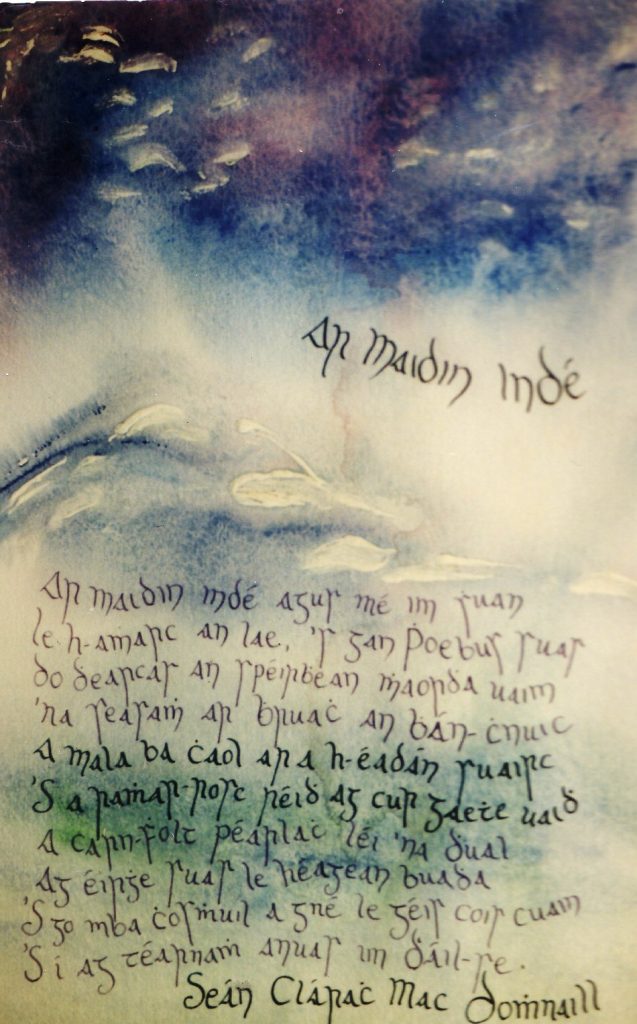 Ar maidin indé
Ar maidin indé agus mé im suan
le h-aṁarc an lae, 's gan Ṗoebus suas
do dearcas an spéirḃean ṁaorda uaim
'na seasaṁ ar bruaċ an bán-ċnuic
A mala ba ċaol ar a h-éadán suairc
'S a raṁar-rosc réid ag cur gaeṫe uaid
A carn-ḟolt péarlaċ léi 'na dual
Ag éirġe suas le héagean buada
'S go mba ċosṁuil a gné le géis cois cuain
'S í ag téarnaṁ anuas im dáil-se.
Seán Cláraċ Mac Doṁnaill